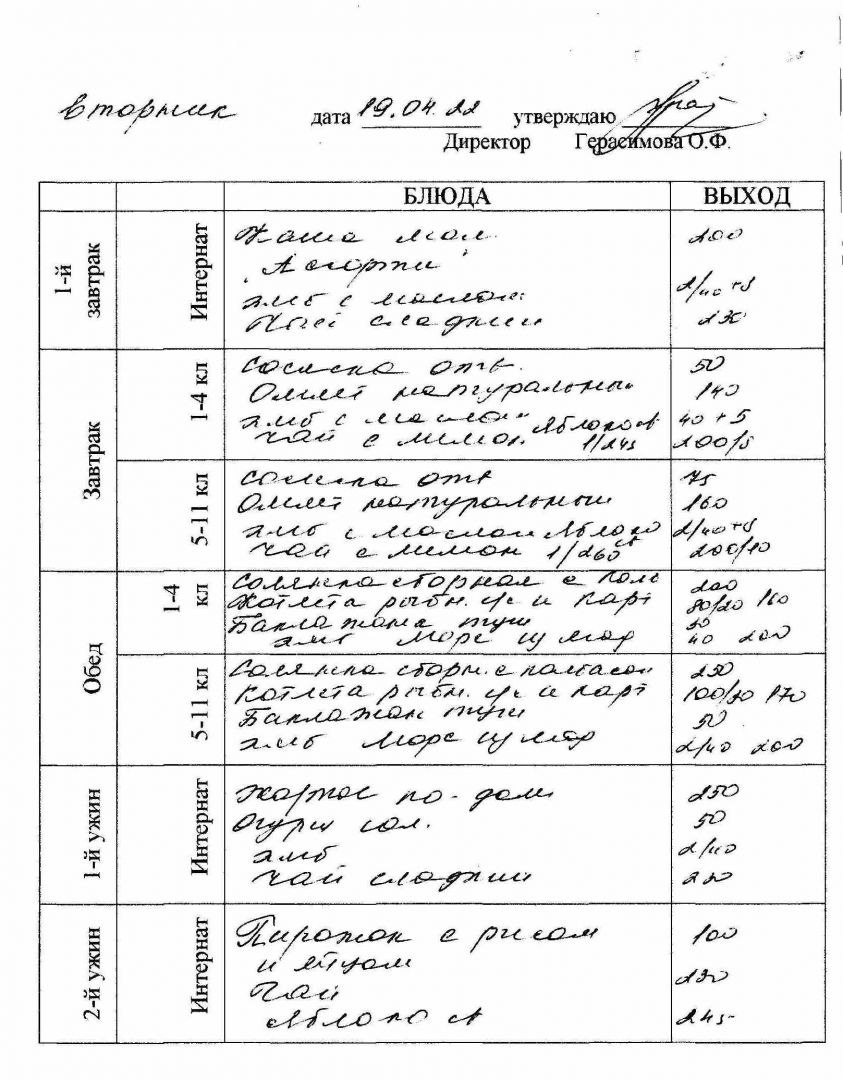 вторник дата 19.04.22 утверждаю
Директор Герасимова О.Ф.
БЛЮДА ВЫХОД
1-й завтрак Интернат
Каша мол. 200
"Ассорти"
хлеб с маслом 2/40+5
Чай сладкий 230
Завтрак 1-4 кл
Сосиска отв. 50
Омлет натуральный 140
хлеб с маслом Яблоко 40+5
чай с лимон 1/245 200/5
5-11 кл
Сосиска отв 75
Омлет натуральный 160
хлеб с маслом Яблоко 2/40+5
чай с лимон 1/260 200/10
Обед 1-4 кл
Солянка сборная с колб 200
Котлета рыбн. с/с и карт 80/20 160
Баклажан туш 50
хлеб морс 40 200
5-11 кл
Солянка сборн. с колбасой 250
Котлета рыбн. с/с и карт 100/30 170
Баклажан туш 50
хлеб морс 2/40 200
1-й ужин Интернат
жаркое по-дом 250
Огурц сол. 50
хлеб 2/40
чай сладкий 230
2-й ужин Интернат
Пирожок с рисом 100
и яйцом
Чай 230
Яблоко 245